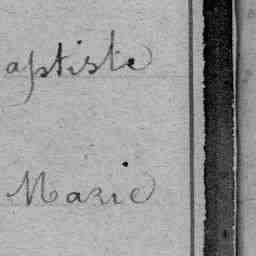 aptiste
Marie